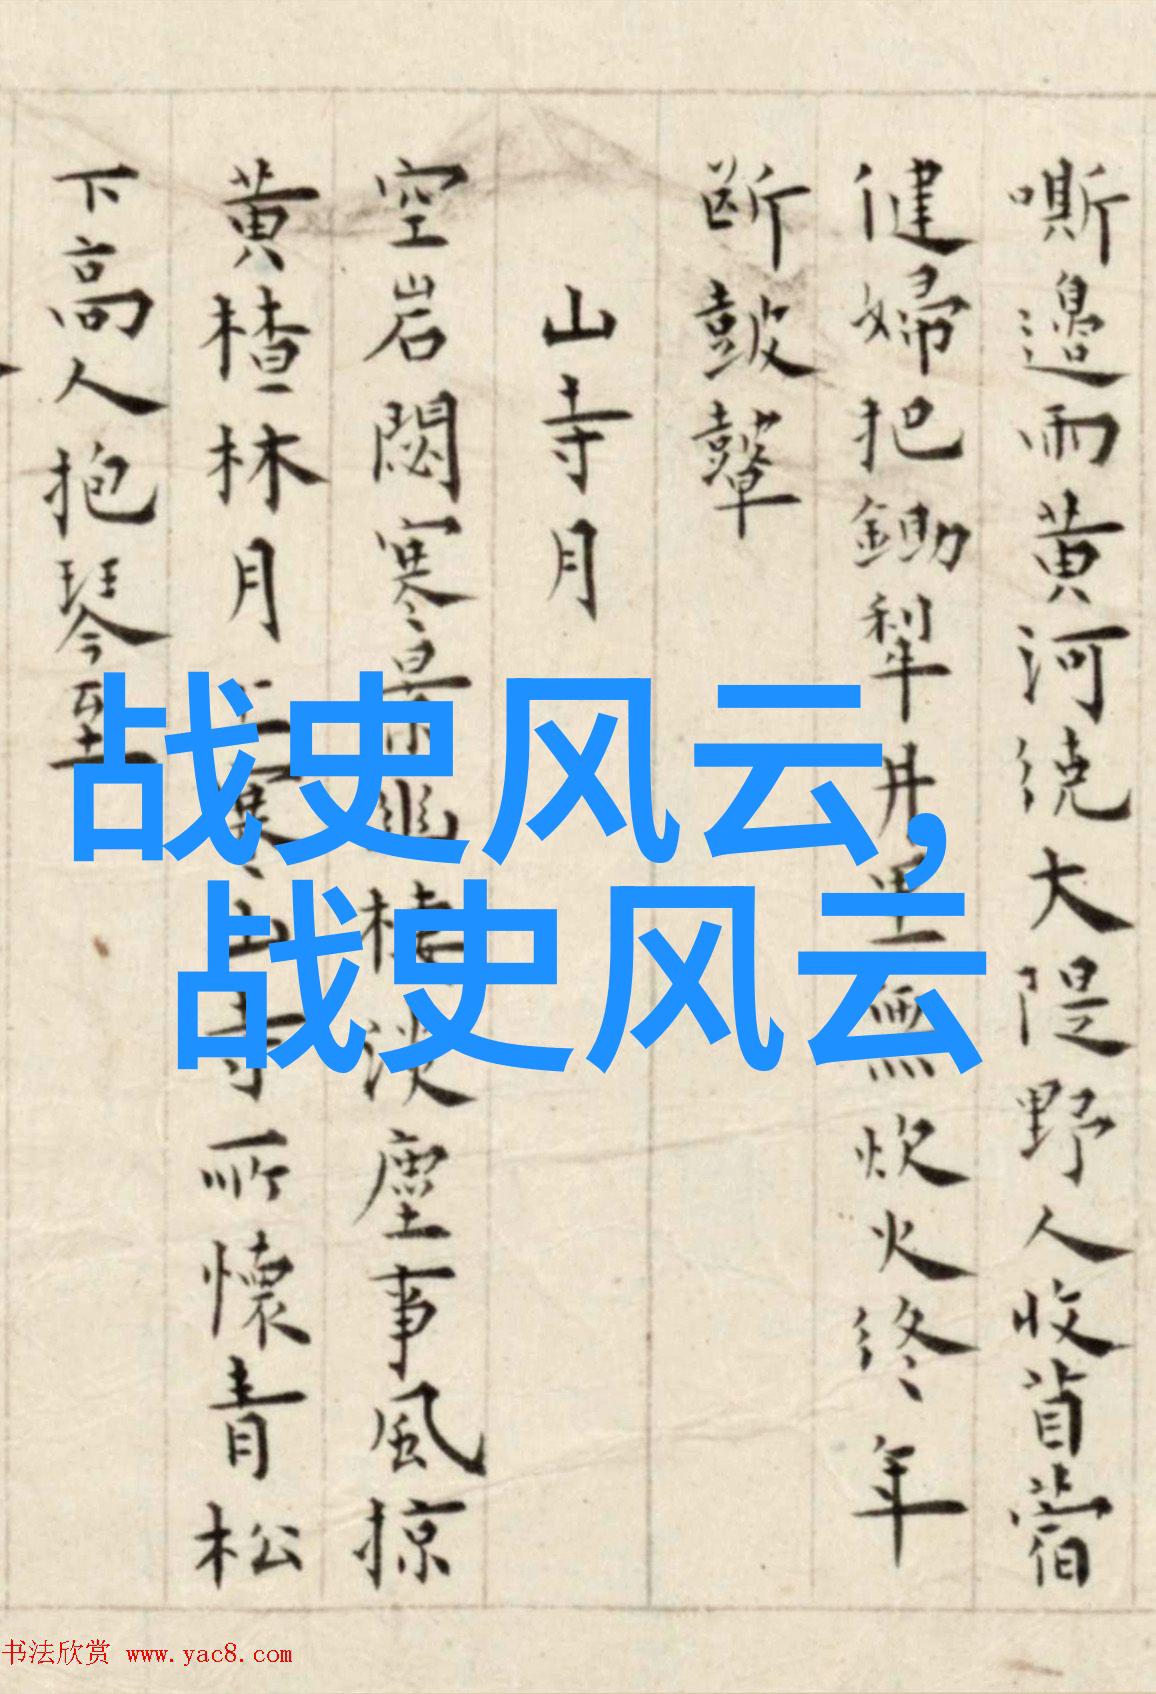 嘶邊雨黄河繞大隄野人收苜蓿
健婦把鋤犁井里無炊火終年
断鼓鼙
山寺月
空岩閟寒景 桂淡塵事風掠
黄楂林月上 山寺所懷青松
下高人抱琴至
战史风云,
战史风云
书法欣赏 www.yac8.com